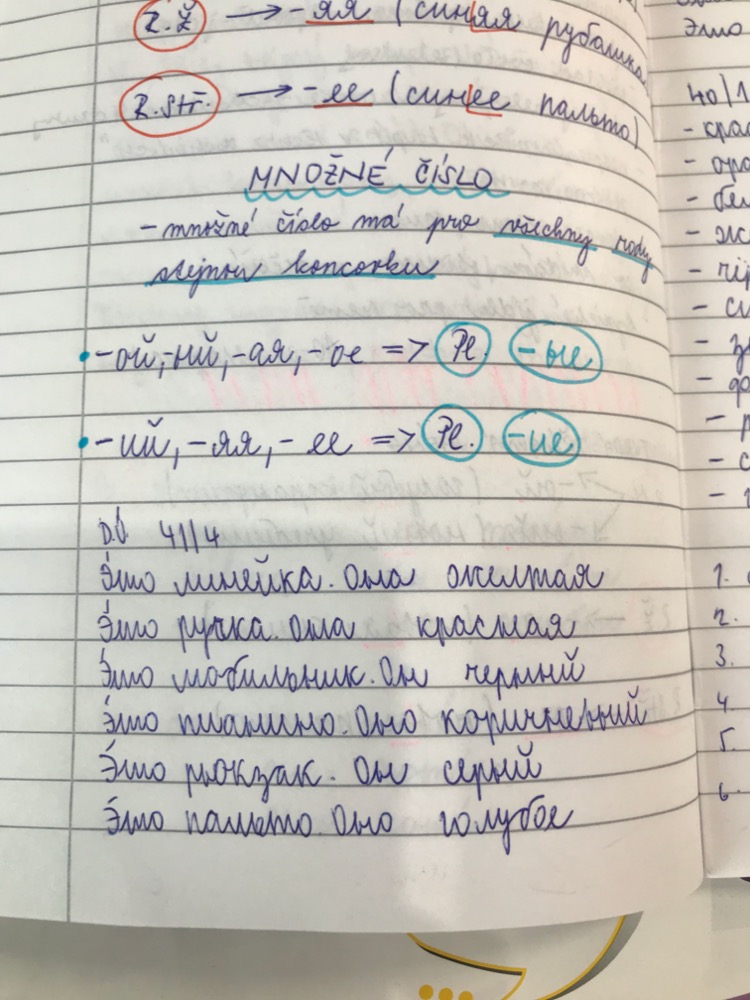 R.Ž → -яя (синяя рубашка
R.stř. → -ее (синее пальто)
MNOŽNÉ ČÍSLO
- množné číslo má pro všechny rody
stejnou koncovku
-ой, -ый, -ая, -ое => Pl. -ые
-ий, -яя, -ее => Pl. -ие
DÚ 41/4
Это линейка. Она желтая
Это ручка. Она красная
Это мобильник. Он черный
Это пианино. Оно коричневый
Это рюкзак. Он серый
Это пальто. Оно голубое
Это
40/1
- крас
- ора
- бел
- ж
- си
1.
2.
3.
4.
5.
6.